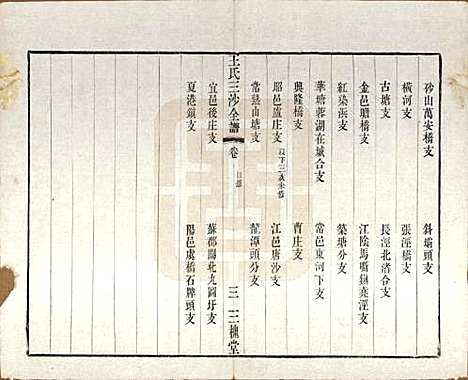 砂山萬安橋支
斜塥頭支
橫河支
張涇橋支
古塘支
長涇北渚合支
金邑瞻橋支
江陰馬嘶鎮堯涇支
紅染浜支
築塘分支
華塘蓉湖在城合支
常邑東河下支
興隆橋支
曹庄支
昭邑盧庄支 以下三支未修
江邑唐沙支
常熟山塘支
龍潭頭分支
王氏三沙全譜
卷
目錄
三
三槐堂
宜邑後庄支
蘇郡閶北九圖圩支
夏港鎮支
陽邑虞橋石牌頭支